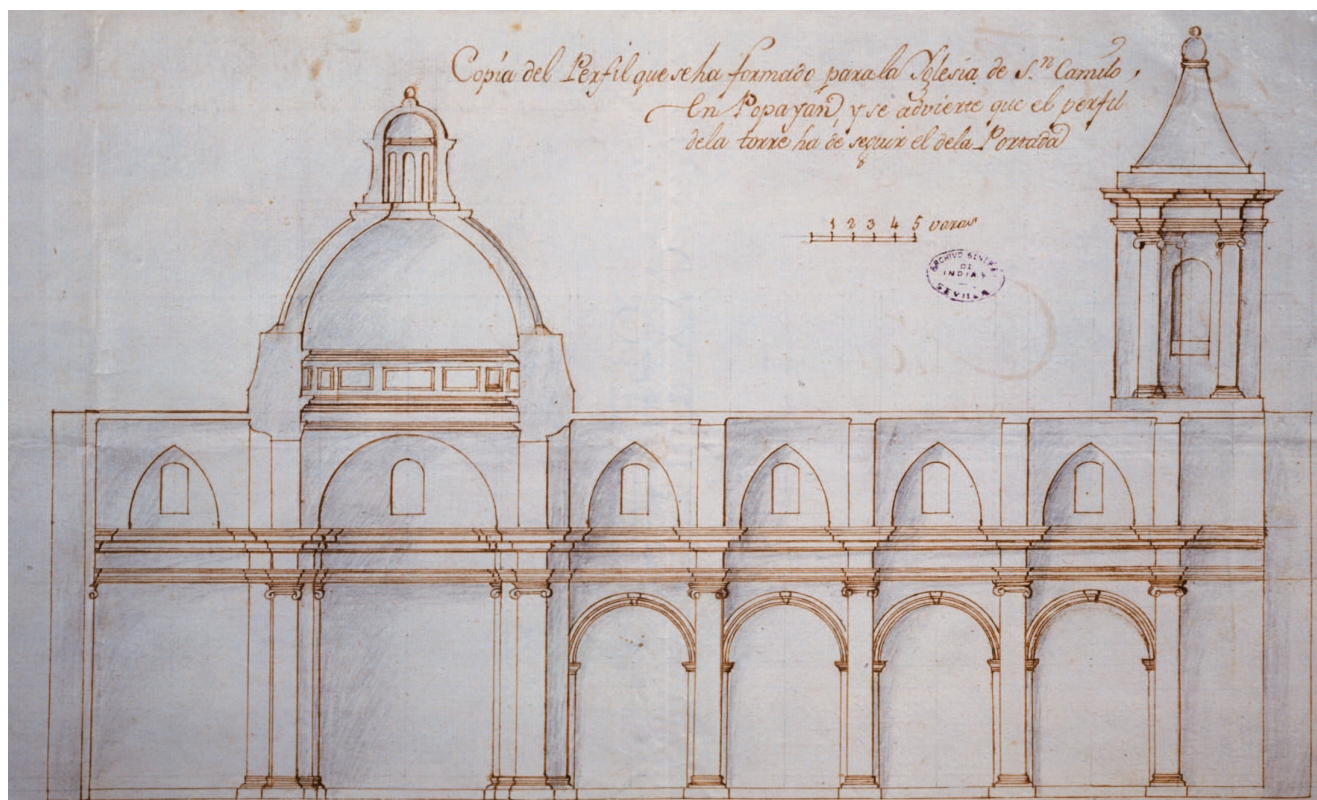 Copia del Perfil que se ha formado para la Yglesia de S.n Camilo,
en Popayan, y se advierte que el perfil
dela torre ha de seguir el dela Portada
1 2 3 4 5 varas
ARCHIVO GENERAL
DE
INDIAS
SEVILLA